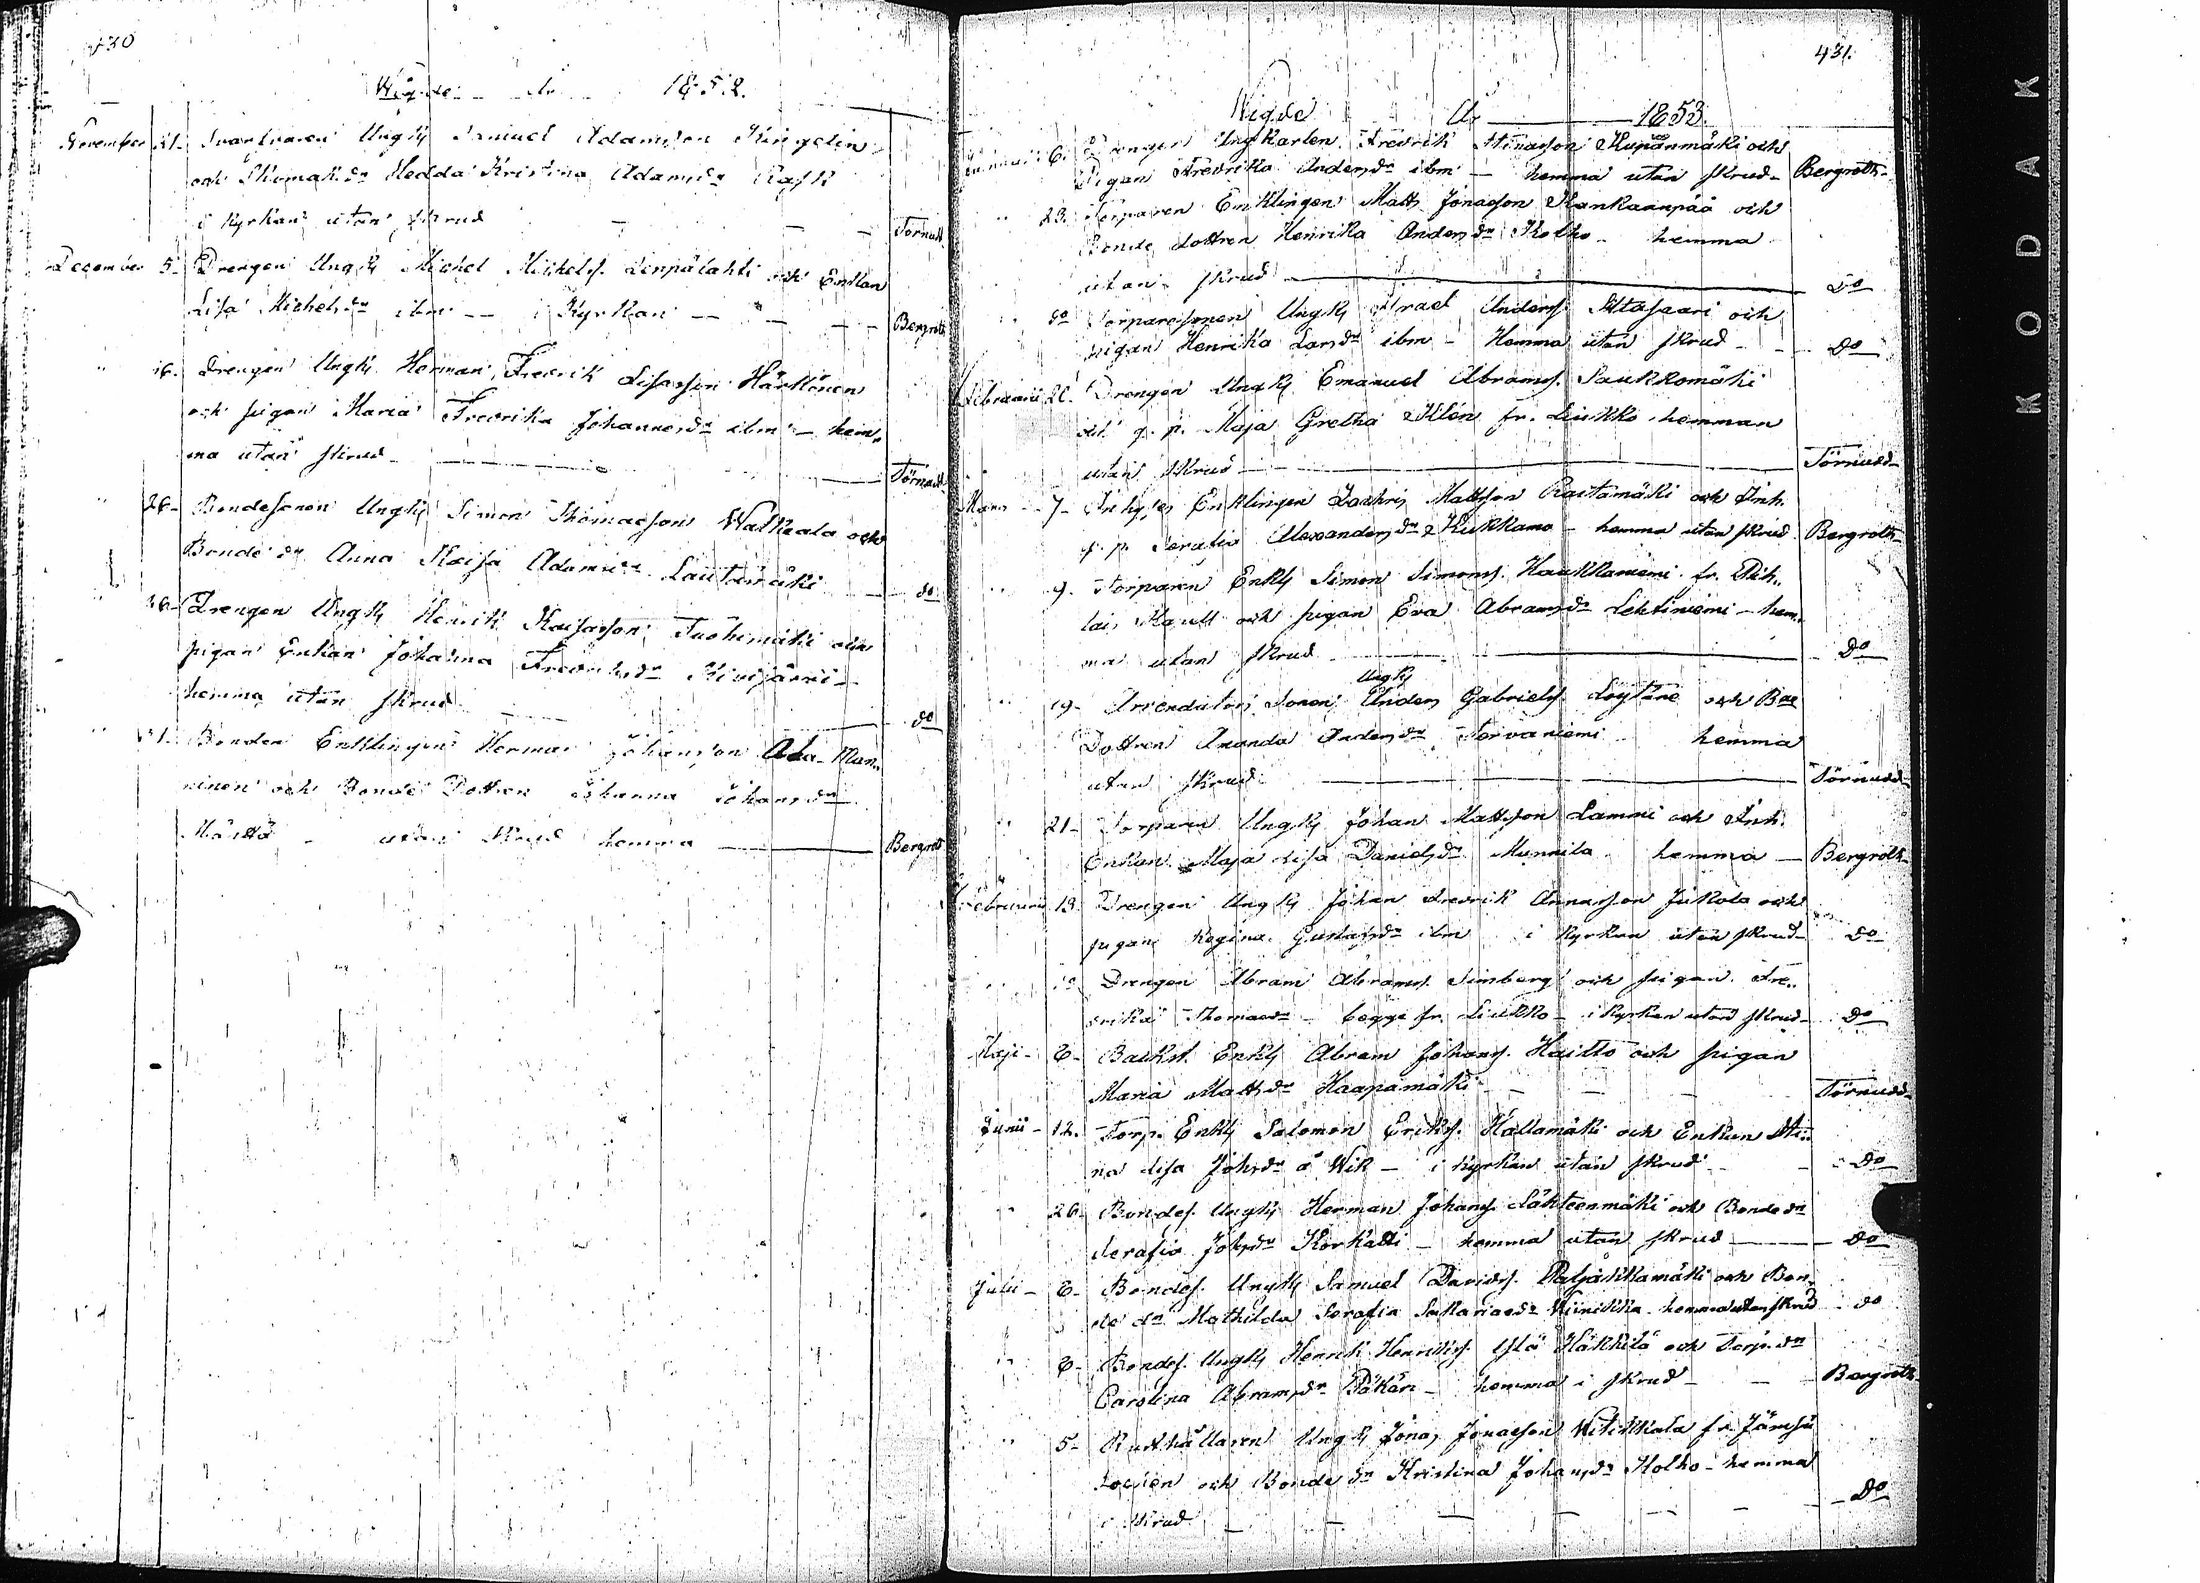 430
Wigde År 1852.
November 21. Svarfvaren Ungk Samuel Adamsson Ringelin
och Skomak. dr Hedda Kristina Adamsdr Rask
i Kyrkan utan skrud Törnudd
December 5. Drengen Ungk Michel Michelss. Leppälahti och Enkan
Lisa Michelsdr ibm i Kyrkan Bergroth
" 16. Drengen Ungk Herman Fredrik Lisasson Härkönen
och pigan Maria Fredrika Johannesdr ibm hem„
ma utan skrud Törnudd
" 26. Bondesonen Ungk Simon Thomasson Walkeala och
Bonde dr Anna Kaisa Adamsdr Lautamäki do
" 26. Drengen Ungk Henrik Kaisasson Tuohimäki och
pigan Enkan Johanna Fredriksdr Kivijärvi
hemma utan skrud do
" 31. Bonden Enklingen Herman Johansson Ala Man„
ninen och Bonde Dottren Johanna Johansdr
Määttä utan skrud hemma Bergroth
431.
Wigde År 1853.
Januarii 6. Drengen Ungkarlen Fredrik Stinasson och
Pigan Fredrika Andersdr ibm hemma utan skrud Bergroth
" 23. Torparen Enklingen Matts Jonasson Kankaanpää och
Bonde dottren Henrika Andersdr Kolho hemma
utan skrud Do
" do Torparesonen Ungk Israel Anderss. Iltasaari och
pigan Henrika Larsdr ibm Hemma utan skrud Do
Februarii 20. Drengen Ungk Emanuel Abramss. Saukkomäki
och q. p. Maja Gretha fr. Liukko hemman
utan skrud Törnudd
Mars 7. Enklingen Zachris Mattsson Rautamäki och Inh.
q. p. Serafia Alexandersdr Kukkamo hemma utan skrud Bergroth
" 9. Torparen Enkl Simon Simonss. Haukkaniemi fr. Pih„
lais Kapell och pigan Eva Abramsdr Lehtiniemi hem„
ma utan skrud Do
Ungk
" 19. Arrendators Sonen Anders Gabrielss. Löytäne och Bde
Dottren Amanda Andersdr Torvaniemi hemma
utan skrud Törnudd
" 21. Torparen Ungk Johan Mattsson Lammi och Inh.
Enkan Maja Lisa Danielsdr Munnila hemma Bergroth
Februarii 13. Drengen Ungk Johan Fredrik Annasson Jukola och
pigan Regina Gustafsdr ibm i Kyrkan utan skrud Do
" do Drengen Abram Abramss. Simberg och pigan Fre„
drika Thomasdr begge fr. Liukko i Kyrkan utan skrud Do
Maji 6. Backst. Enkl Abram Johanss. Haitto och pigan
Maria Mattsdr Haapamäki Törnudd
Junii 12. Torp. Enkl Salomon Erikss. Hallamäki och Enkan Sti„
na Lisa Johsdr å Wik i Kyrkan utan skrud Do
" 26. Bondes. Ungk Herman Johanss. Lähteenmäki och Bonde dr
Serafia Johsdr Korkatti hemma utan skrud Do
Julii 6. Bondes. Ungk Samuel Davidss. Paljakkamäki och Bon„
de dr Mathilda Serafia Sakariasdr Viinikka hemma utan skrud do
" 6. Bondes. Ungk Henrik Henrikss. Ylä Häkkilä och Torp. dr
Carolina Abramsdr Pökäri hemma i skrud Bergroth
" 5. Rusthållaren Ungk Jonas Jonasson Witikkala fr. Jämsä
Socken och Bonde dr Kristina Johansdr Kolho hemma
i skrud Do
KODAK